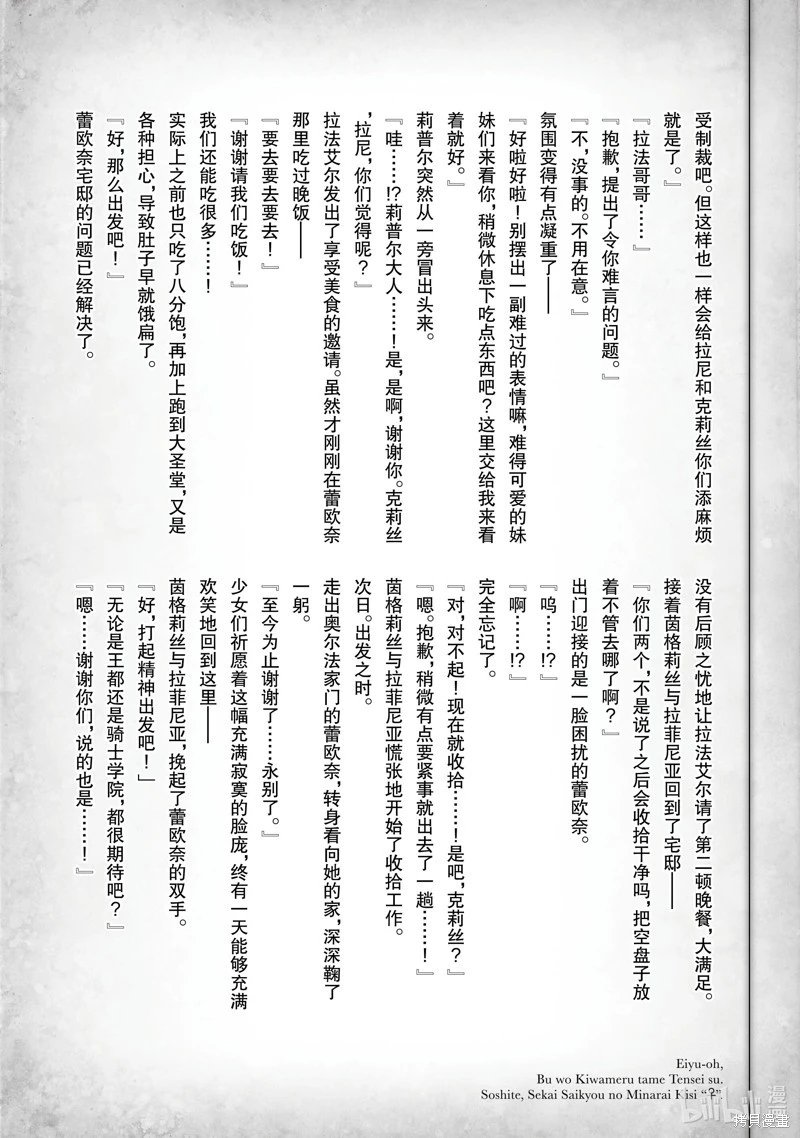 受制裁吧。但这样也一样会给拉尼和克莉丝你们添麻烦
就是了。』
『拉法哥哥……』
『抱歉,提出了令你难言的问题。』
『不,没事的。不用在意。』
氛围变得有点凝重了——
『好啦好啦！别摆出一副难过的表情嘛,难得可爱的妹
妹们来看你,稍微休息下吃点东西吧？这里交给我来看
着就好。』
莉普尔突然从一旁冒出头来。
『哇……!?莉普尔大人……！是,是啊,谢谢你。克莉丝
,拉尼,你们觉得呢？』
拉法艾尔发出了享受美食的邀请。虽然才刚刚在蕾欧奈
那里吃过晚饭——
『要去要去要去！』
『谢谢请我们吃饭！』
我们还能吃很多……！
实际上之前也只吃了八分饱,再加上跑到大圣堂,又是
各种担心,导致肚子早就饿扁了。
『好,那么出发吧！』
蕾欧奈宅邸的问题已经解决了。
没有后顾之忧地让拉法艾尔请了第二顿晚餐,大满足。
接着茵格莉丝与拉菲尼亚回到了宅邸——
『你们两个,不是说了之后会收拾干净吗,把空盘子放
着不管去哪了啊？』
出门迎接的是一脸困扰的蕾欧奈。
『呜……!?』
『啊……!?』
完全忘记了。
『对,对不起！现在就收拾……！是吧,克莉丝？』
『嗯。抱歉,稍微有点要紧事就出去了一趟……！』
茵格莉丝与拉菲尼亚慌张地开始了收拾工作。
次日。出发之时。
走出奥尔法家门的蕾欧奈,转身看向她的家,深深鞠了
一躬。
『至今为止谢谢了……永别了。』
少女们祈愿着这幅充满寂寞的脸庞,终有一天能够充满
欢笑地回到这里——
茵格莉丝与拉菲尼亚,挽起了蕾欧奈的双手。
『好,打起精神出发吧！」
『无论是王都还是骑士学院,都很期待吧？』
『嗯……谢谢你们,说的也是……！』
Eiyu-oh,
Bu wo Kiwameru tame Tensei su.
Soshite, Sekai Saikyou no Minarai Kisi “♀”.
bilibili 漫画
拷貝漫畫